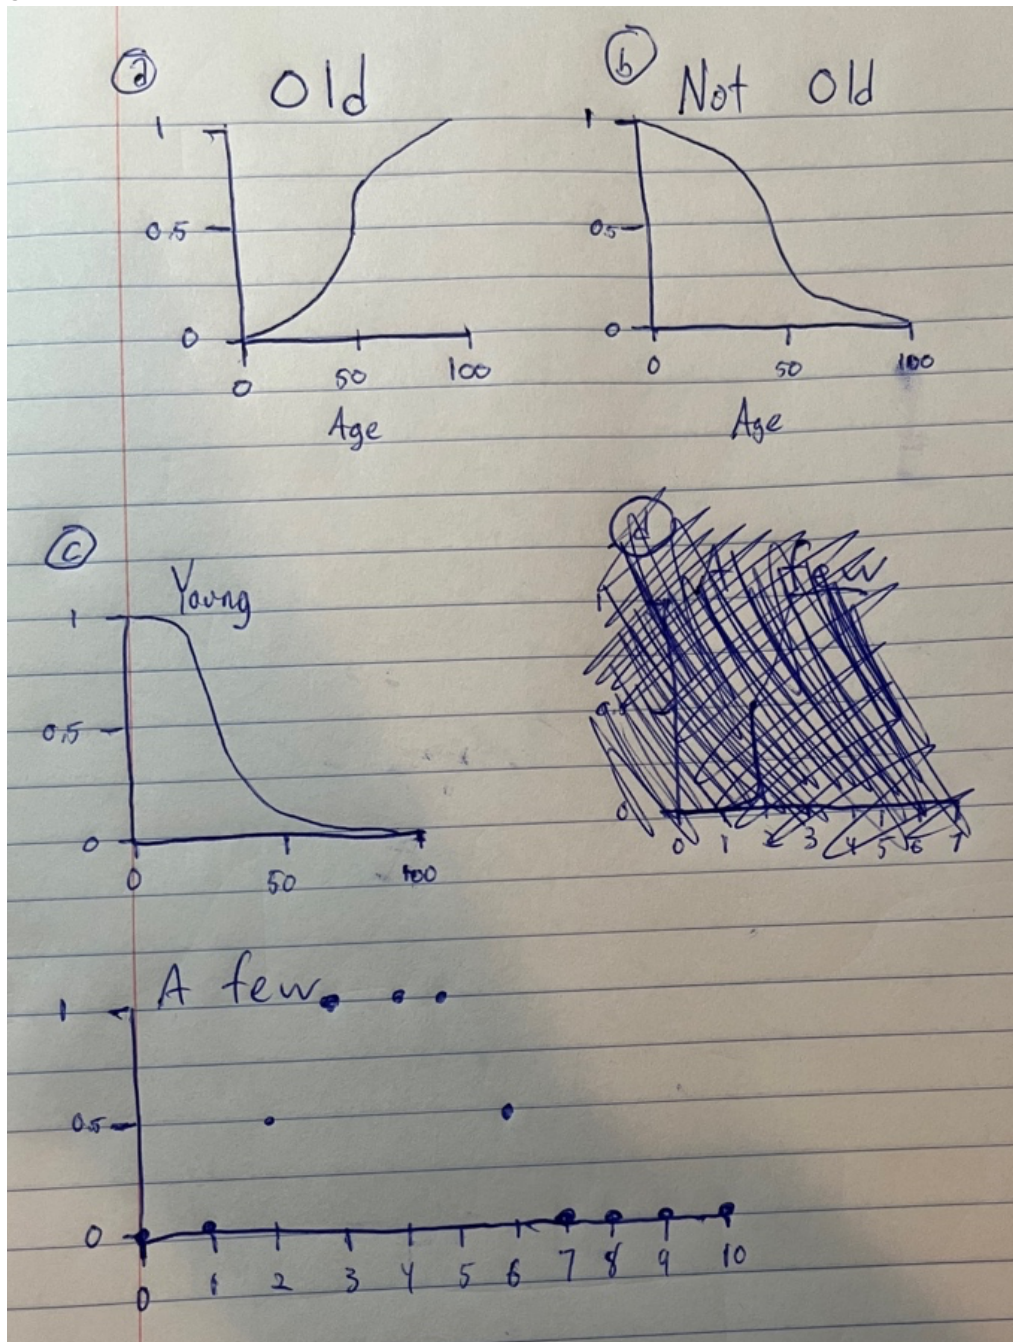 a Old
b Not Old
1
0.5
0
0 50 100
Age
1
0.5
0
0 50 100
Age
c
Young
1
0.5
0
0 50 100
d
few
1
0
0 1 2 3 4 5 6 7
A few
1
0.5
0
0 1 2 3 4 5 6 7 8 9 10